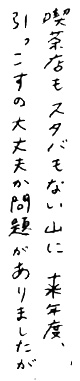 喫茶店もスタバもない山に 来年度、
引っこすの大丈夫か問題がありましたが